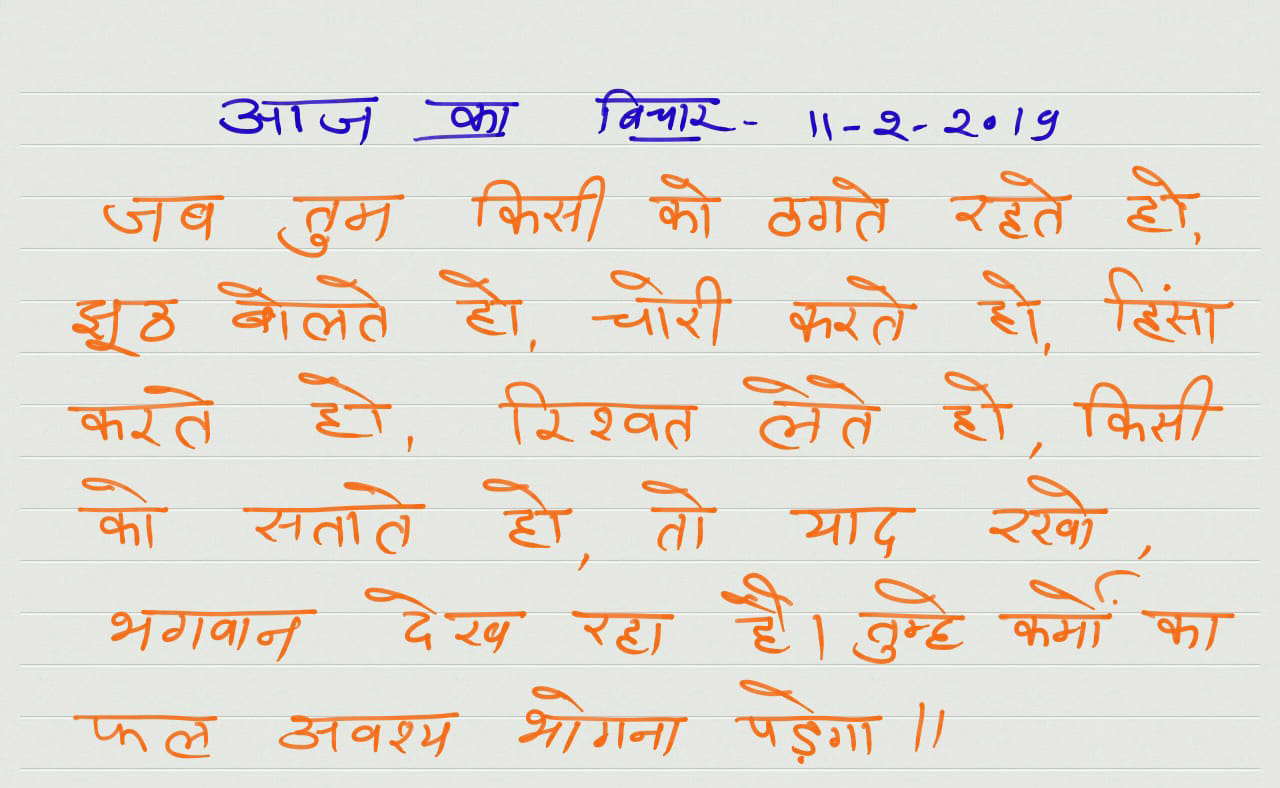 आज का विचार - 11-2-2019
जब तुम किसी को ठगते रहते हो,
झूठ बोलते हो, चोरी करते हो, हिंसा
करते हो, रिश्वत लेते हो, किसी
को सताते हो, तो याद रखो,
भगवान देख रहा है। तुम्हे कर्मों का
फल अवश्य भोगना पड़ेगा॥